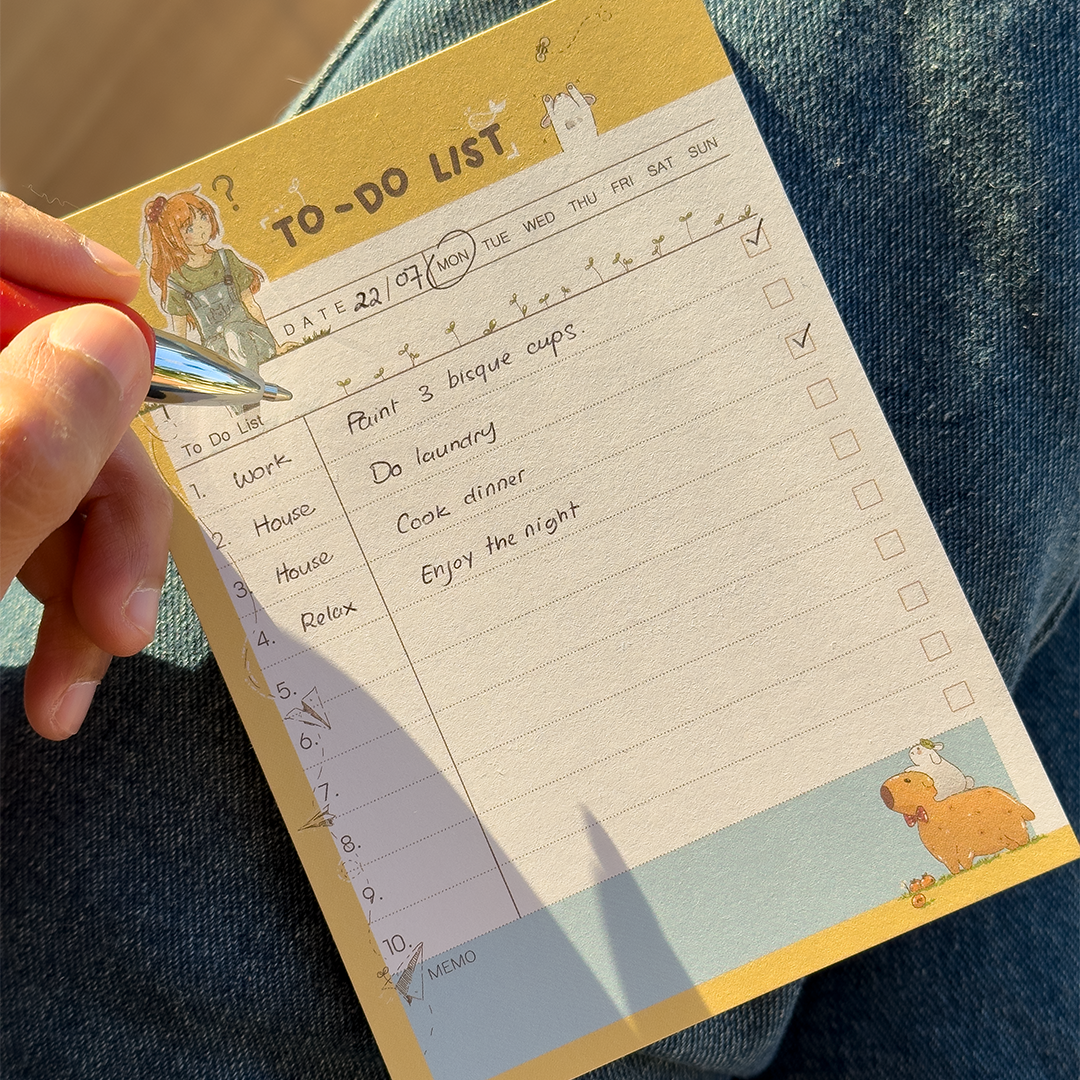 ?
TO-DO LIST
DATE 22/07 MON TUE WED THU FRI SAT SUN
To Do List
1. Work Paint 3 bisque cups.
2. House Do laundry
3. House Cook dinner
4. Relax Enjoy the night
5.
6.
7.
8.
9.
10.
MEMO